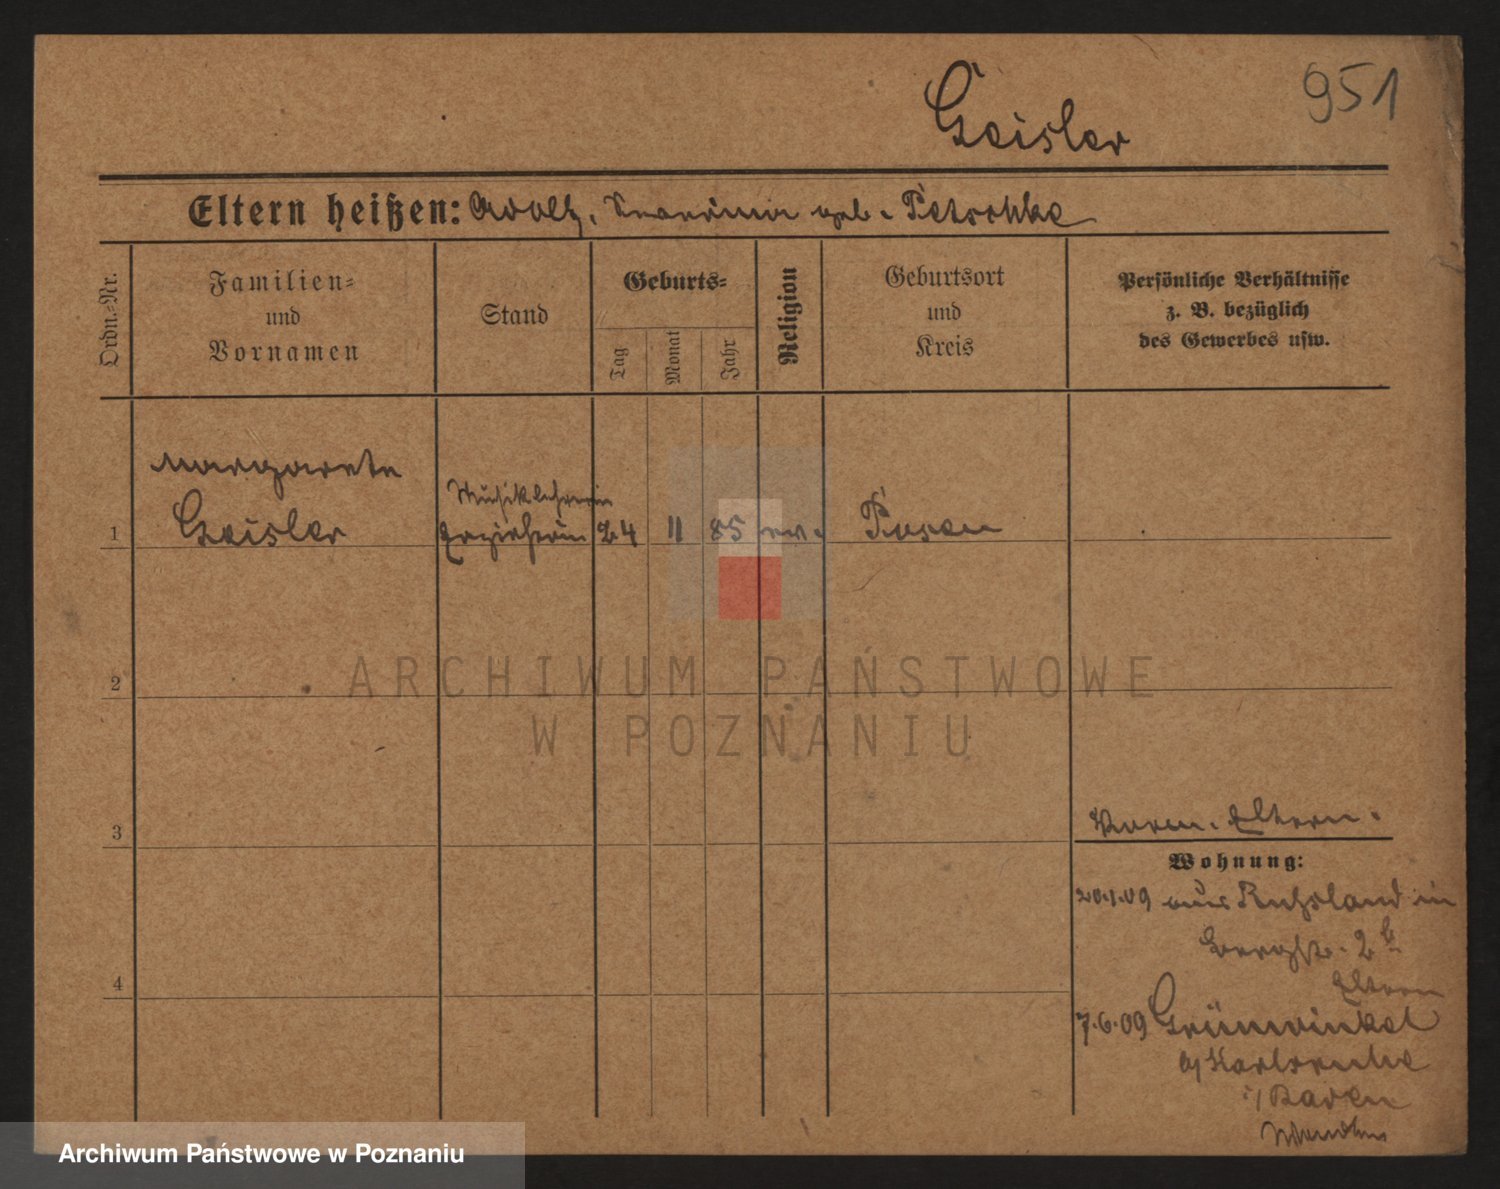 951
Geisler
Eltern heißen: Adolf, geb. Petschke
Ordn.-Nr.
Familien-
und
Vornamen
Stand
Geburts-
Tag
Monat
Jahr
Religion
Geburtsort
und
Kreis
Persönliche Verhältnisse
z. B. bezüglich
des Gewerbes usw.
Margarete
Musiklehrerin
1 Geisler Erzieherin 24 11 85 ev. Posen
2
ARCHIWUM PAŃSTWOWE
W POZNANIU
3
Eltern.
Wohnung:
20.1.09 aus Russland in
Bergstr. 2b
4
Eltern
7.6.09 Grünwinkel
b/ Karlsruhe
i/ Baden
Archiwum Państwowe w Poznaniu